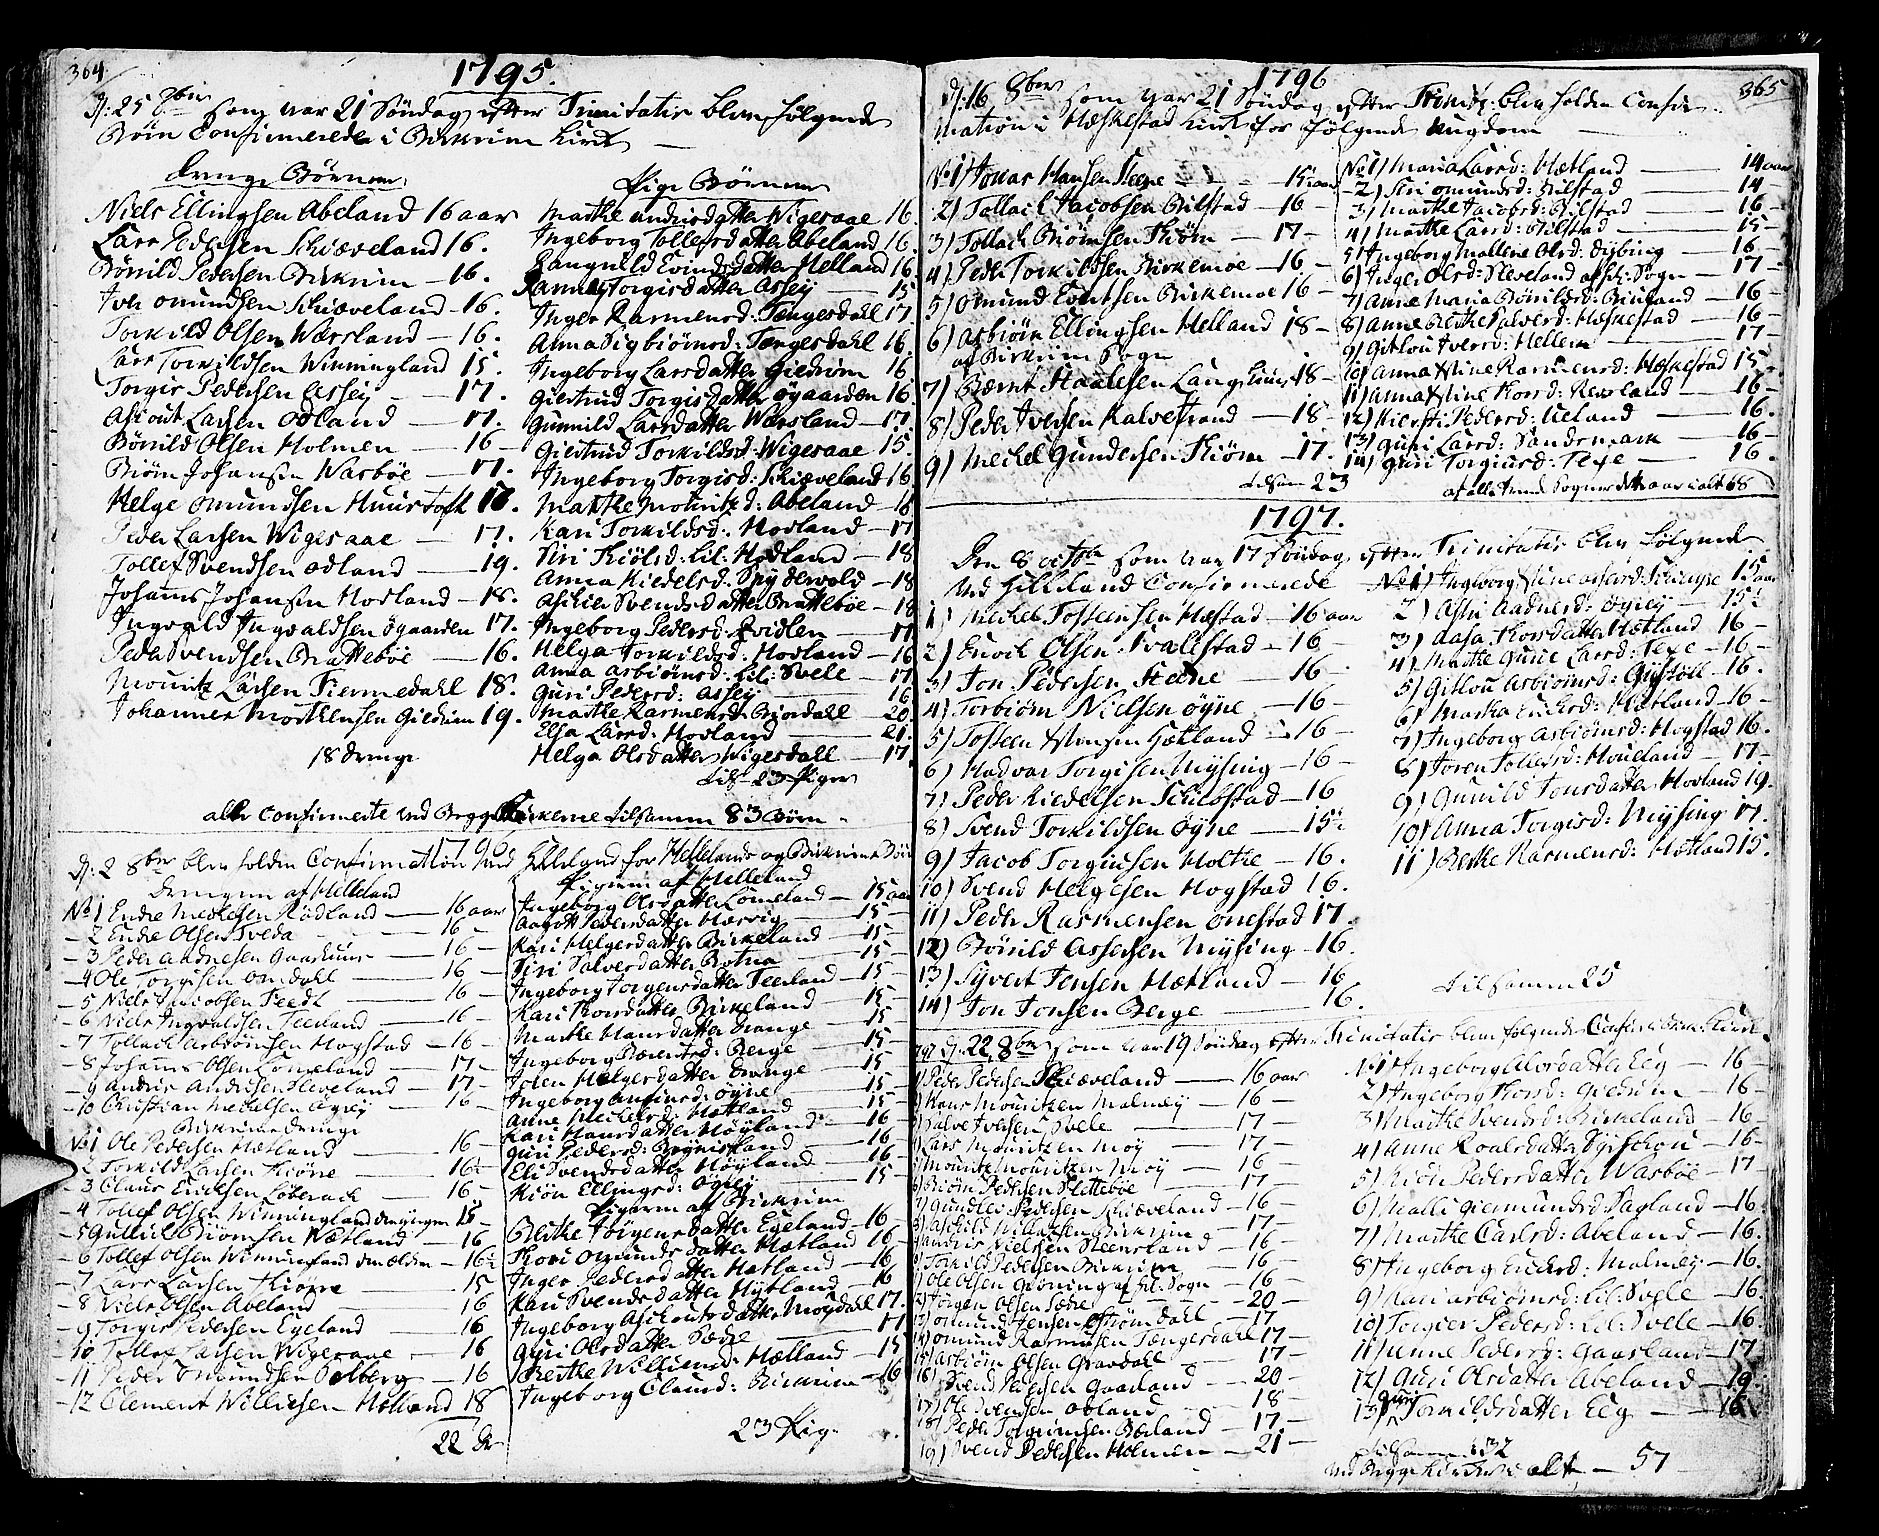 364
1795.
D: 25 8br som var 21 Söndag efter Trinitatis blev følgende
Börn Confirmerede i Birkrim Kirk
Drenge Börnene
Niels Ellingsen Abeland 16 aar
Lars Pedersen Schiæveland 16.
Bönild Pedersen Birkrim - 16.
Iver Omundsen Schiæveland - 16.
Torkild Olsen Wærsland - 16.
Lars Torkildsen Winningland 15.
Torgis Pedersen Assey - 17.
Ascout Larsen Odland - 17.
Bönild Olsen Holmen - 16
Biörn Johansen Wasböe - 17.
Helge Omundsen Huustoft 18.
Peder Larsen Wigesaae - 17.
Tollef Svendsen Odland - 19.
Johannes Johansen Hovland - 18.
Ingvald Ingvaldsen Øgaarden 17.
Peder Svendsen Brattebøe - 16.
Mouritz Larsen Tiermedahl 18.
Johannes Mortensen Giedrim 19.
18 drenge
Pige Börnene
Marthe Andersdatter Wigesaae 16.
Ingeborg Tollefsdatter Abeland 16.
Rangnild Evindsdatter Helland 16.
Torgisdatter Assey - 15
Inger Rasmusd: Tængesdahl 17.
Anna Sigbiörnsd: Tængesdahl 16.
Ingeborg Larsdatter Giedrim 16
Giertrud Torgisdatter Øgaarden 16.
Gunnild Larsdatter Wærsland - 17.
Giertrud Torkildsd: Wigesaae 15.
Ingeborg Torgisd: Schiæveland 16
Marthe Mouritzd: Abeland - 16
Kari Torkildsd: Hovland - 17
Siri Thiölsd: Lil: Hovland - 18
Anna Kiedelsd: Spydevold - 18
Aschier Svendsdatter Brattebøe - 18
Ingeborg Pedersd: Qvidlen - 17
Helga Torkildsd: Hovland - 16
Anna Asbiörnsd: Lil: Svele - 17
Guri Pedersd: Assey - 16
Marthe Rasmusd: Birsdahl - 20.
Elsa Larsd: Hovland - 21.
Helga Olsdatter Wigesdall - 17
Tils 23 Piger
alle Confirmerte ved Begge Kirkerne tilsammen 83 Börn
1796
D: 2 8br blev holden Confirmation ved Helleland for Hellelands og Birkrims Börn
Drengene af Helleland
No 1 Endre Mechelsen Rödland - 16 aar
- 2 Endre Olsen Tveda - 16 -
- 3 Peder Andresen Gaashuus - 16 -
- 4 Ole Torgisen Omdahl - 16 -
- 5 Niels Jacobsen Feedt - 16 -
- 6 Niels Ingvaldsen Teerland - 16 -
- 7 Tollach Asbiörnsen Hogstad - 16 -
- 8 Johannes Olsen Lomeland - 17 -
- 9 Andreis Andersen Sleveland - 17 -
- 10 Christian Mechelsen Øgrey - 16 -
Birkrims drenge
No 1 Ole Pedersen Hætland - 16 -
- 2 Torkild Larsen Kiörre - 16½
- 3 Claus Erichsen Löberach - 16 -
- 4 Tollef Olsen Winningland den yngre 15 -
- 5 Gulluf Biörnsen Hætland - 16
- 6 Tollef Olsen Winningland den Olden - 16½
- 7 Lars Larsen Kiörre - 15
- 8 Niels Olsen Abeland - 16
- 9 Torgis Pedersen Egeland - 16
- 10 Tollef Larsen Wigesaae - 16
- 11 Peder Omundsen Solberg - 16
- 12 Clement Williksen Helland 18
22 Dr
Pigerne af Helleland
Ingeborg Olsdatter Lomeland - 15 aar
Aagott Pedersdatter Hærvig - 15 -
Kari Helgesdatter Birkeland - 15 -
Siri Salvesdatter Botna - 15 -
Ingeborg Torgersdatter Teerland - 15 -
Kari Thorsdatter Birkeland - 15 -
Marthe Hansdatter Drange - 15
Ingeborg Berentsd: Berge - 15 -
Joren Helgesdatter Drange - 15
Ingeborg : Øyne - 15 -
Anne Mechelsd: Hætland - 15 -
Kari Hansdatter Höyland - 16
Guri Pedersd: - 16
Eli Svendsdatter Höyland - 16 -
Kiön Ellingsd: Øgrey - 15
Pigerne af Birkrim
Berthe Jörgensdatter Egeland - 16
Thori Omundsdatter Hætland 16 -
Inger Pedersdatter Hætland - 16
Kari Svendsdatter Hytland - 16
Ingeborg Aschoutsdatter Moydahl 17.
Guri Olsdatter Sædre - 17
Berthe Williamsd: Hætland - 15
Ingeborg Clausd: Birkrim - 16
23 Pig.
365
1796
D: 16 8bris som var 21 Söndag efter Trinit: blev holden Confir-
mation i Heskestad Kirk for følgende Ungdom
No 1) Jonas Hansen Steene - 15½ aar
2) Tollach Jacobsen Bilstad - 16 -
3) Tollach Biörnsen Kiörn - 17 -
4) Peder Torkildsen Birkemoe - 16 -
5) Omund Evertsen Birkemoe 16 -
6) Asbiörn Ellingsen Helland 18 -
af Birkrim Sogn
7) Bærnt Haalesen Langhuus - 18 -
8) Peder Iversen Kalvestrand - 18 -
9) Mechel Gundersen Kiörn - 17.
tilsam 23
No 1) Maria Larsd: Hætland - 14 aar
- 2) Siri Omundsd: Bilstad - 14 -
3) Marthe Jacobsd: Bilstad - 16 -
4) Marthe Larsd: Bilstad - 15 -
5) Ingeborg Mallene Olsd: Dybing - 16 -
6) Inger Olsd: Sleveland af Hel: Sogn - 17 -
7) Anne Maria Bönildsd: Birkland - 16
8) Anne Berthe Salvesd: Heskestad - 16 -
9) Gitlou Iversd: Hellem - 17 -
10) Anna Stine Rasmusd: Heskestad 15 -
11) Anna Stine Thorsd: Refsland - 16 -
12) Kiersti Pedersd: Ueland - 16.
13) Guri Larsd: Sandsmark - 16 -
14) Guri Torgiusd: Texe - 16.
af alle trende Sogner dette aar i alt 68
1797.
Den 8 octobr som var 17 Söndag efter Trinitatis blev følgende
ved Helleland Confirmerede
1) Mechel Tosteensen Hæstad - 16 aar
2) Enoch Olsen Tvallestad - 16
3) Jon Pedersen Steene - 16
4) Torbiörn Nielsen Øyne - 16 -
5) Tosteen Hætland - 16 -
6) Hadvar Torgisen Nysing - 16 -
7) Peder Kiedelsen Schibstad - 16
8) Svend Torkildsen Øyne - 15½
9) Jacob Torgiusen Holthe - 16.
10) Svend Helgesen Hogstad 16.
11) Peder Rasmusen Onestad 17.
12) Bönild Assersen Nysing - 16.
13) Syvert Jensen Hætland - 16
14) Jon Jonsen Berge - 16.
No 1) Ingeborg Stine 15 aar
2) Assri Aadnesd: Øgrey - 15½
3) Aasa Thorsdatter Hætland 16 -
4) Marthe Gurie Larsd: Texe - 16 -
5) Gitlou Asbiörnsd: Gystöll - 16.
6) Martha Erichsd: Hætland - 16 -
7) Ingeborg Asbiörnsd: Hogstad 16.
8) Joren Tollefsd: Houeland - 17 -
9) Gunild Tonsdatter Hovland 19.
10) Anna Torgisd: Nysing 17.
11) Berthe Rasmusd: Hætland 15.
tilsamm 25
797 D: 22 8br som var 19 Söndag efter Trinitatis blev følgende Confir: i Birk: Kirk
1) Peder Pedersen Schiæveland - 16 aar
2) Hans Mouritzen Malmey - 16 -
3) Salve Iversen Svele - 17 -
4) Lars Mouritzen Moy - 17 -
5) Mouritz Mouritzen Moy - 16 -
6) Biörn Pedersen Slettebøe - 17 -
7) Gundlei Pedersen Schiæveland - 16
8) Aschild Willaksen Birkrim - 17 -
9) Andreis Nielsen Steensland - 16 -
10) Torkild Pedersen Birkrim - 16
11) Ole Olsen Grøning af Hel: Sogn - 16 -
12) Jörgen Olsen Sædre - 20 -
13) Omund Jensen Strömdahl - 17
14) Omund Rasmusen Tængesdahl 17 -
15) Asbiörn Olsen Gravdahl - 17 -
16) Svend Pedersen Gaasland - 20 -
17) Ole Svendsen Odland - 18
18) Peder Torgiusen Byeland - 17 -
19) Svend Pedersen Holmen - 21 -
No 1 Ingeborg Alvsdatter Eeg - 16 -
2) Ingeborg Thorsd: Giedrim - 16 -
3) Marthe Svendsd: Birkeland 16
4) Anne Roalsdatter Tyschou - 16 -
5) Kisti Pedersdatter Wasbøe - 17 -
6) Malli Giermundsd Sagland - 16.
7) Marthe Carlsd: Abeland - 16.
8) Ingeborg Erichsd: Malmey - 16.
9) Kari Asbiörnsd: Lil: Svele - 16.
10) Torgier Pedersd: Lil: Svele - 16.
11) Anne Pedersd: Gaasland - 17
12) Guri Olsdatter Abeland - 19.
13) Guri Torkildsdatter Eeg - 16
tilsamm 32
ved Begge Kirker i alt - 57